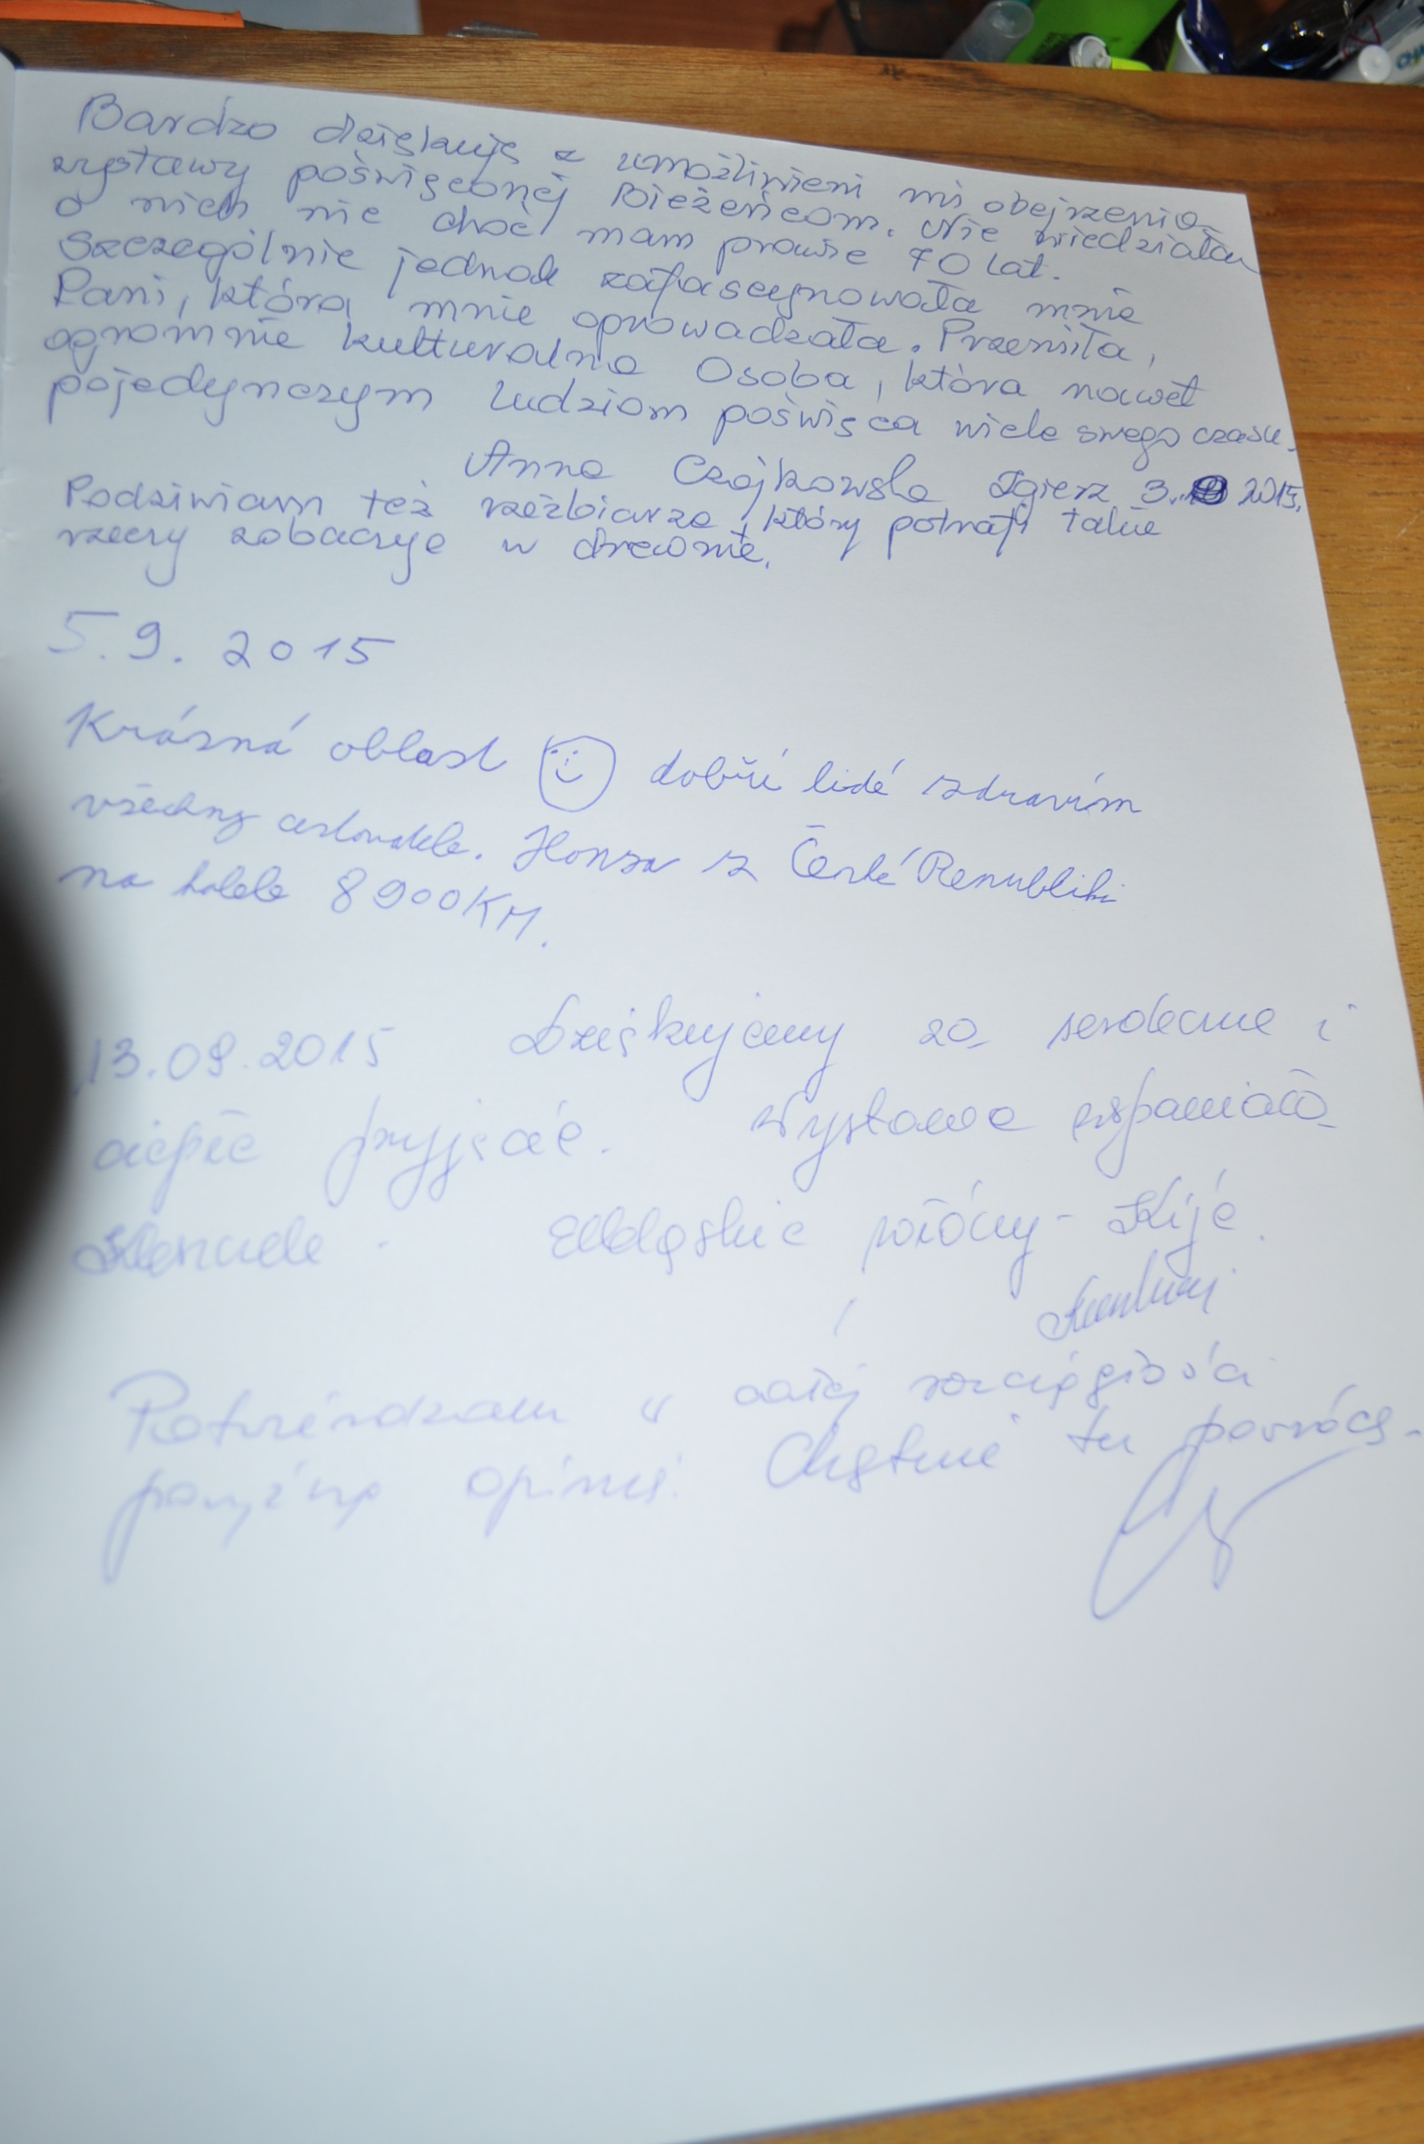 Bardzo dziękuję z umożliwieni mi obejrzenia
wystawy poświęconej Bieżeńcom. Nie wiedziałam
o nich nic choć mam prawie 70 lat.
Szczególnie jednak zafascynowała mnie
Pani, która mnie oprowadzała. Przemiła,
ogromnie kulturalna Osoba, która nawet
pojedynczym ludziom poświęca wiele swego czasu.
Anna Czajkowska Zgierz 3. 2015.
Podziwiam też rzeźbiarza, który potrafi takie
rzeczy zobaczyć w drewnie.
5.9.2015
Krásná oblast dobří lidé zdravím
všechny cestovatele. Honza z České Republiki
na kolele 8900KM.
13.09.2015 Dziękujemy za serdeczne i
ciepłe przyjęcie. Wystawa wspaniała
Potwierdzam w całej rozciągłości
powyższą opinię. Chętnie tu powrócę.